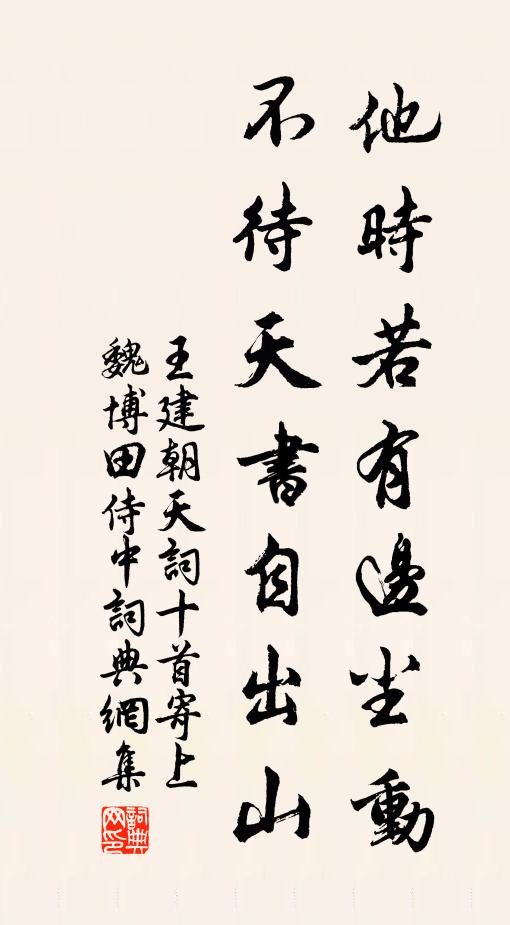 他時若有邊尘動
不待天書自出山
王建朝天詞十首寄上
魏博田侍中詞典網集
詞典网印